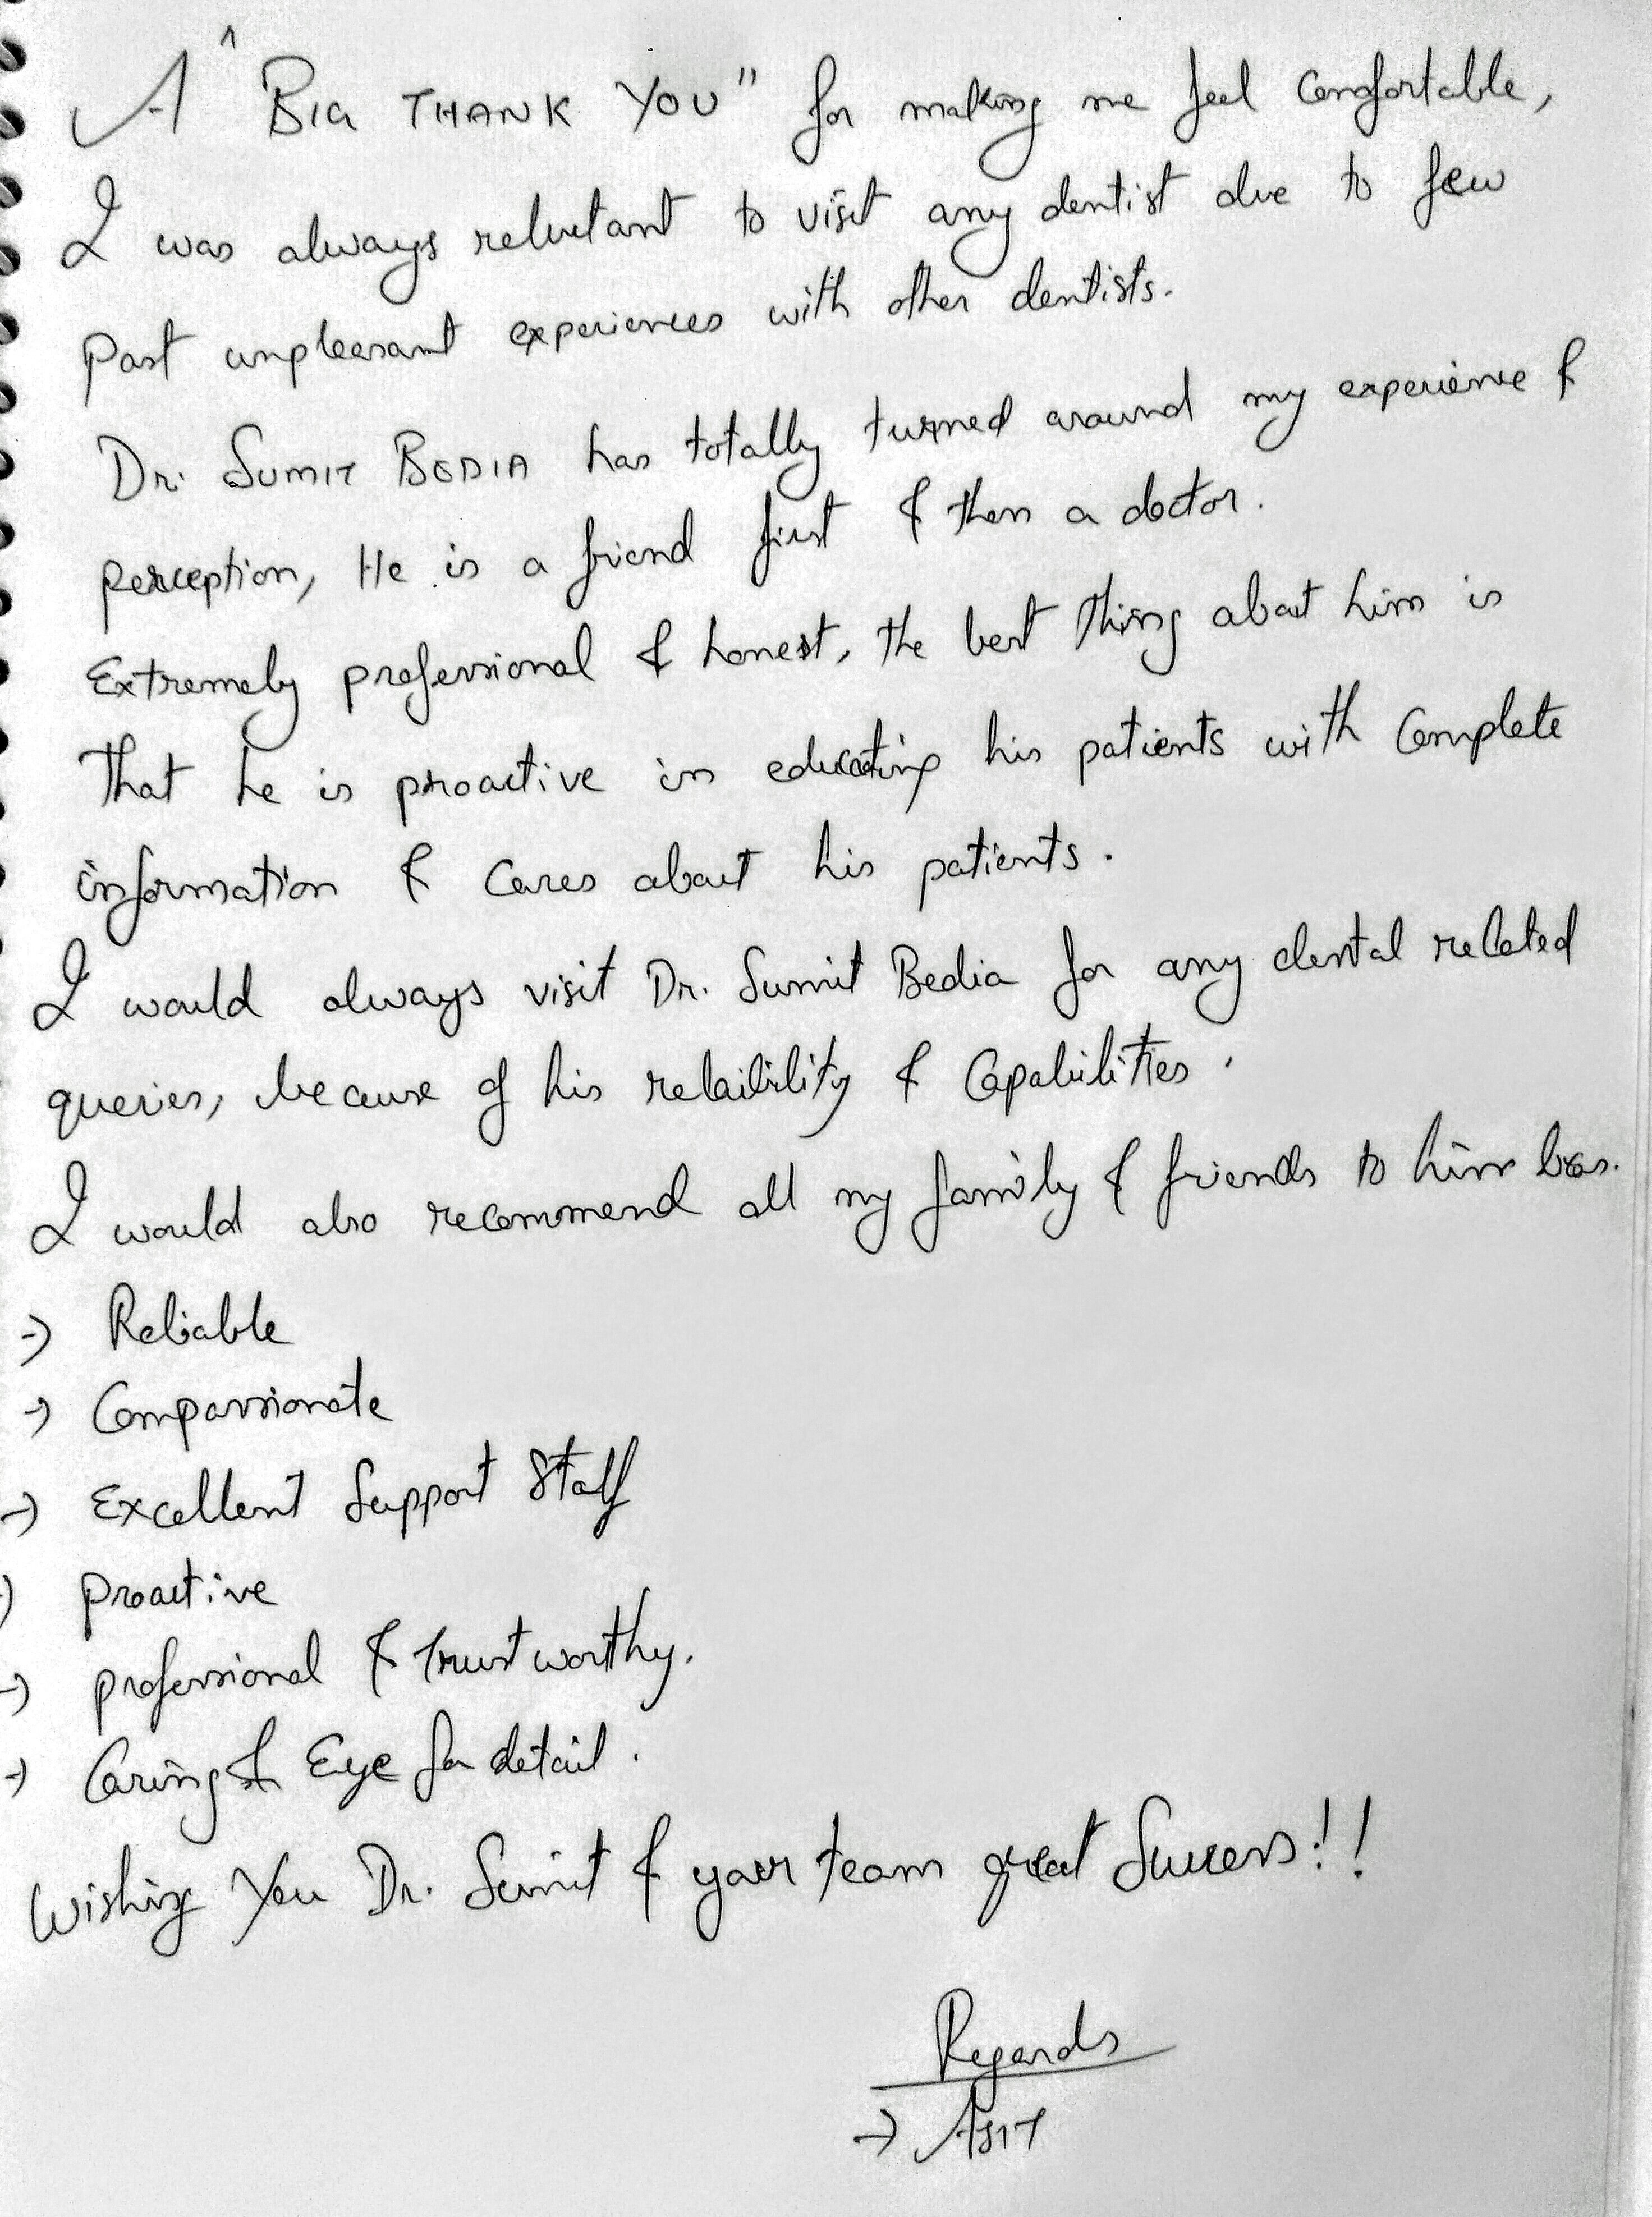 A "BIG THANK YOU" for making me feel Comfortable,
I was always reluctant to visit any dentist due to few
Past unpleasant experiences with other dentists.
DR. SUMIT BEDIA has totally turned around my experience &
perception, He is a friend first & then a doctor.
Extremely professional & honest, the best thing about him is
that he is proactive in educating his patients with Complete
information & Cares about his patients.
I would always visit Dr. Sumit Bedia for any dental related
queries, because of his relaibility & Capabilities.
I would also recommend all my family & friends to him
→ Reliable
→ Compassionate
→ Excellent Support Staff
→ Proactive
→ professional & Trustworthy.
→ Caring & Eye for detail.
Wishing You Dr. Sumit & your team great Success!!
Regards
→ ASIT